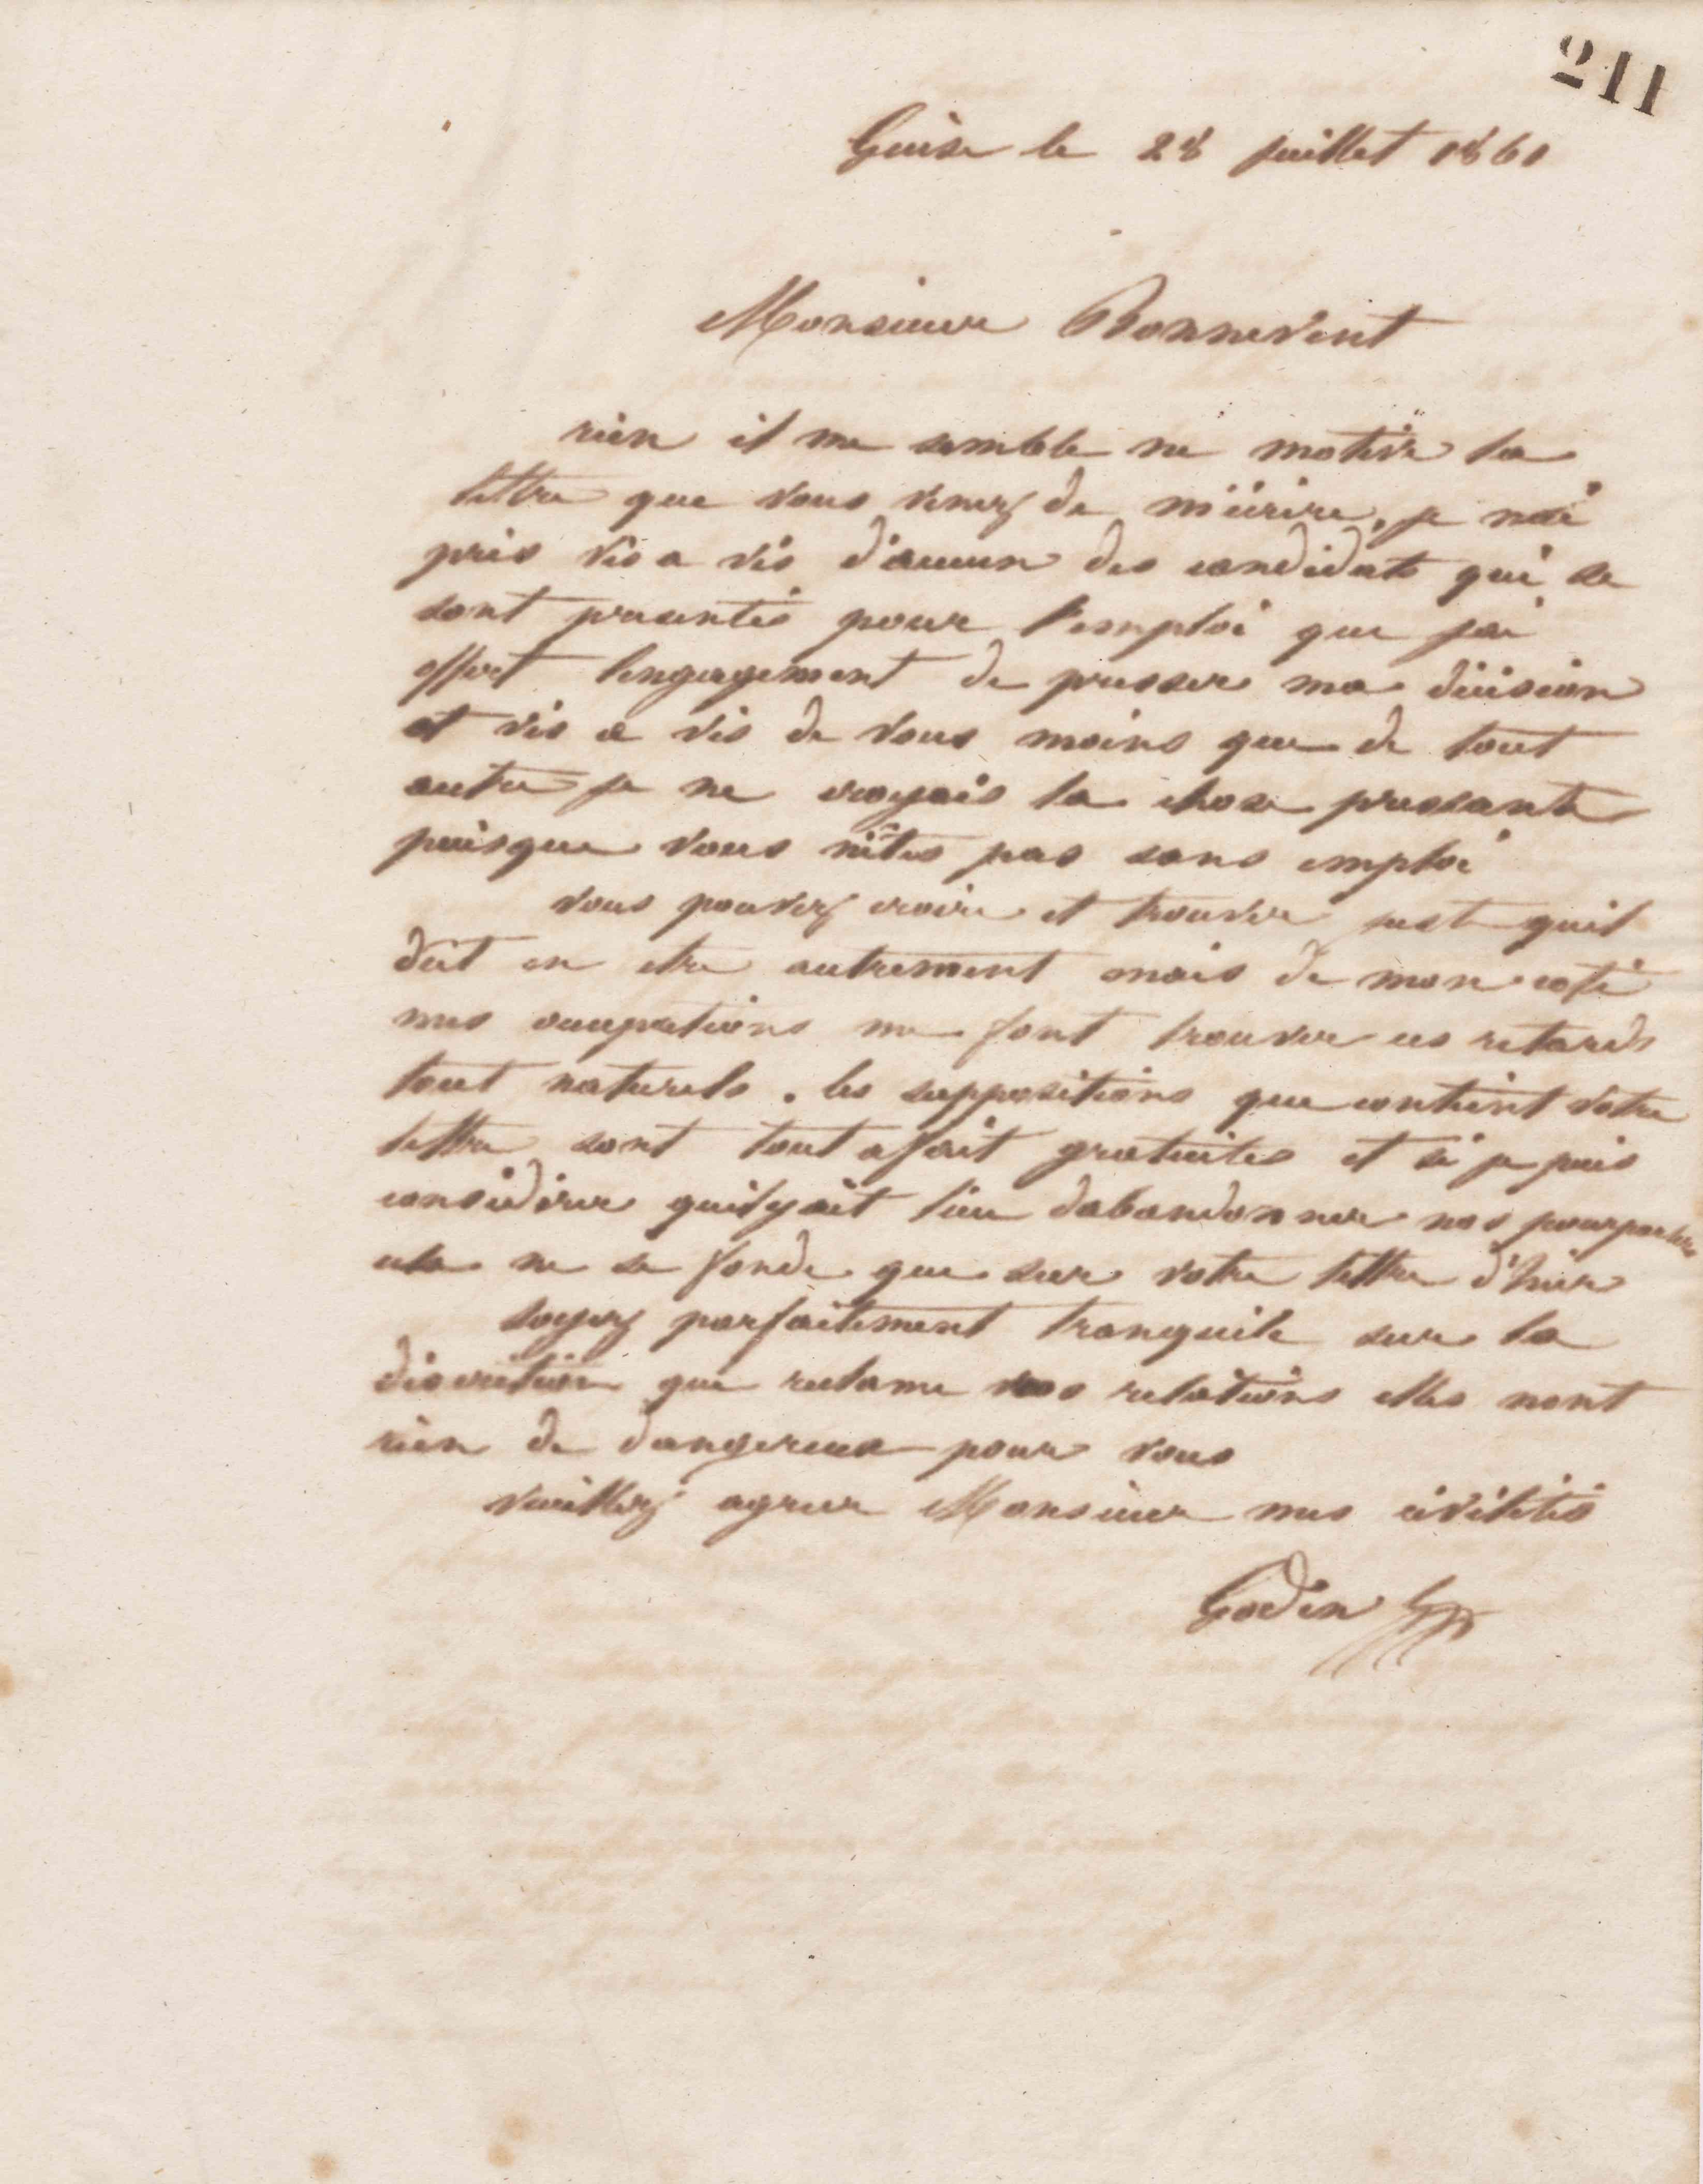 211
Guise le 28 juillet 1860
Monsieur Bonnevent
rien il me semble ne motive la
lettre que vous venez de m'écrire, je n'ai
pris vis a vis d'aucun des candidats qui se
sont presentés pour l'emploi que j'ai
offert l'engagement de presser ma décision
et vis a vis de vous moins que de tout
autre je ne croyais la chose pressante
puisque vous n'êtes pas sans emploi
vous pouvez croire et trouver just quil
dut en etre autrement mais de mon coté
mes occupations me font trouver ces retards
tout naturels. les suppositions que contient votre
lettre sont tout afait gratuites et si je puis
considérer quilyait lieu dabandonner nos pourparlers
cela ne se fonde que sur votre lettre d'hier
soyez parfaitement tranquile sur la
discretion que reclame nos relations elles nont
rien de dangereux pour vous
veuillez agreer Monsieur mes civilités
Godin